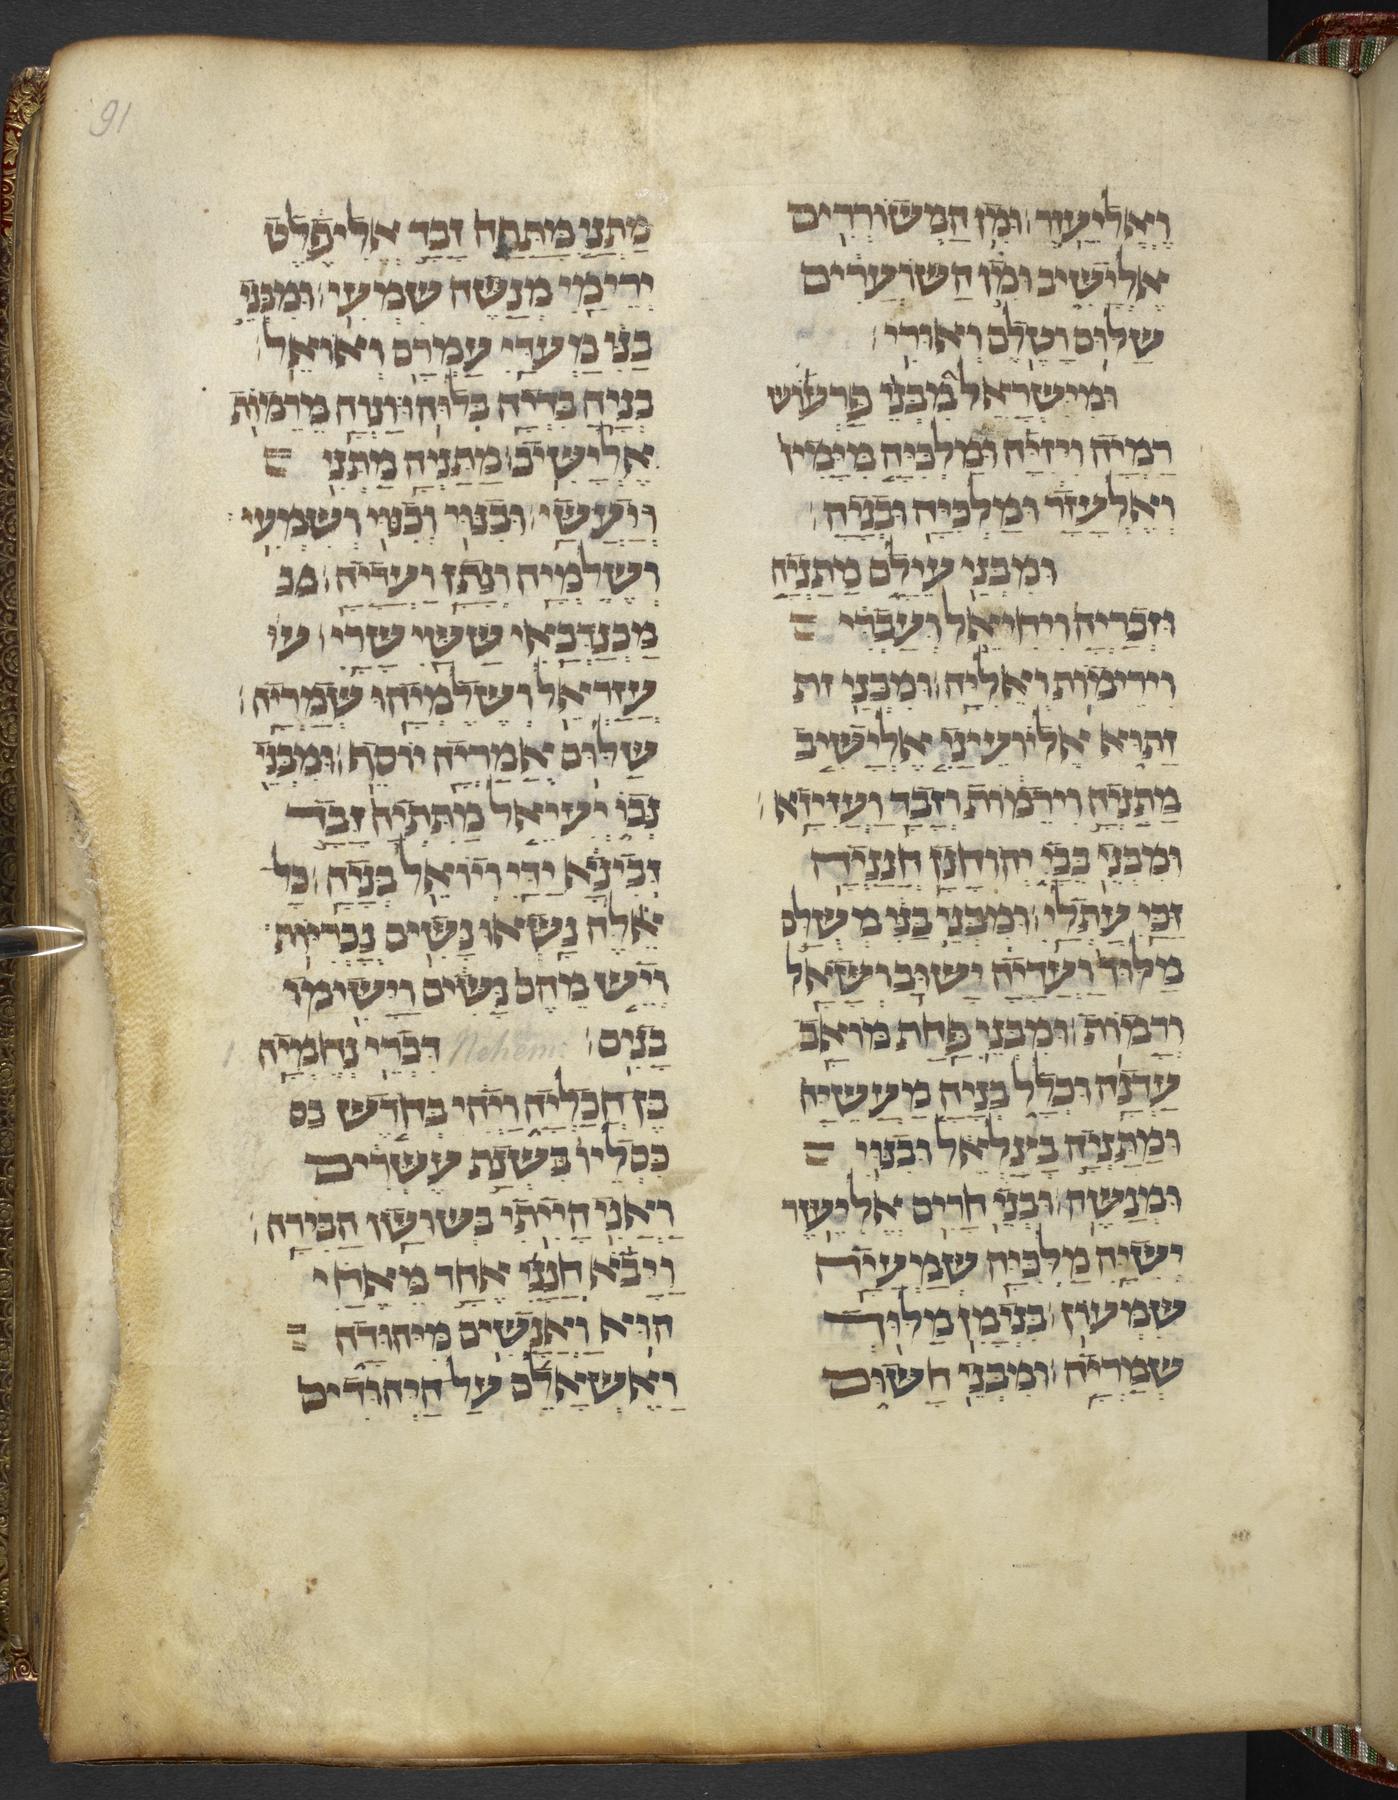 91
וֶאֱלִיעֶזֶר׃ וּמִן הַמְשׁוֹרְרִים
אֶלְיָשִׁיב וּמִן הַשּׁוֹעֲרִים
שַׁלּוּם וָטֶלֶם וְאוּרִי׃
וּמִיִּשְׂרָאֵל מִבְּנֵי פַרְעוֹשׁ
רַמְיָה וְיִזִּיָּה וּמַלְכִּיָּה מִיָּמִין
וְאֶלְעָזָר וּמַלְכִּיָּה וּבְנָיָה׃
וּמִבְּנֵי עֵילָם מַתַּנְיָה
וּזְכַרְיָה וִיחִיאֵל וְעַבְדִּי
וִירֵימוֹת וְאֵלִיָּה׃ וּמִבְּנֵי זת
זַתּוּא אֶלְיוֹעֵינַי אֶלְיָשִׁיב
מַתַּנְיָה וִירֵמוֹת וְזָבָד וַעֲזִיזָא׃
וּמִבְּנֵי בֵּבָי יְהוֹחָנָן חֲנַנְיָה
זַבַּי עַתְלָי׃ וּמִבְּנֵי בָּנִי מְשֻׁלָּם
מַלּוּךְ וַעֲדָיָה יָשׁוּב וּשְׁאָל
ורָמוֹת׃ וּמִבְּנֵי פַּחַת מוֹאָב
עַדְנָה וּכְלָל בְּנָיָה מַעֲשֵׂיָה
וּמַתַּנְיָה בְצַלְאֵל וּבִנּוּי
וּמְנַשֶּׁה׃ וּבְנֵי חָרִם אֱלִיעֶזֶר
יִשִּׁיָּה מַלְכִּיָּה שְׁמַעְיָה
שִׁמְעוֹן׃ בִּנְיָמִן מַלּוּךְ
שְׁמַרְיָה׃ וּמִבְּנֵי חָשׁוּם
מַתְּנַי מַתַּתָּה זָבָד אֱלִיפֶלֶט
יְרֵימַי מְנַשֶּׁה שִׁמְעִי׃ וּמִבְּנֵי
בָנִי מַעֲדַי עַמְרָם וְאוּאֵל׃
בְּנָיָה בֵדְיָה כְּלוּהוּ וַנְיָה מְרֵמוֹת
אֶלְיָשִׁיב׃ מַתַּנְיָה מַתְּנַי
וְיַעֲשָׂי׃ וּבָנִי וּבִנּוּי וְשִׁמְעִי׃
וְשֶׁלֶמְיָה וְנָתָן וַעֲדָיָה׃ מכ
מַכְנַדְבַאי שָׁשַׁי שָׁרָי׃ עז
עֲזַרְאֵל וְשֶׁלֶמְיָהוּ שְׁמַרְיָה׃
שַׁלּוּם אֲמַרְיָה יוֹסֵף׃ וּמִבְּנֵי
נְבוֹ יְעִיאֵל מַתִּתְיָה זָבָד
זְבִינָא יַדַּי וְיוֹאֵל בְּנָיָה׃ כָּל
אֵלֶּה נָשְׂאוּ נָשִׁים נָכְרִיּוֹת
וְיֵשׁ מֵהֶם נָשִׁים וַיָּשִׂימוּ
בָּנִים׃ Nehem: דִּבְרֵי נְחֶמְיָה 1.
בֶּן חֲכַלְיָה וַיְהִי בְחֹדֶשׁ כס
כִּסְלֵיו בִּשְׁנַת עֶשְׂרִים
וַאֲנִי הָיִיתִי בְּשׁוּשַׁן הַבִּירָה׃
וַיָּבֹא חֲנָנִי אֶחָד מֵאַחַי
הוּא וַאֲנָשִׁים מִיהוּדָה
וָאֶשְׁאָלֵם עַל הַיְּהוּדִים